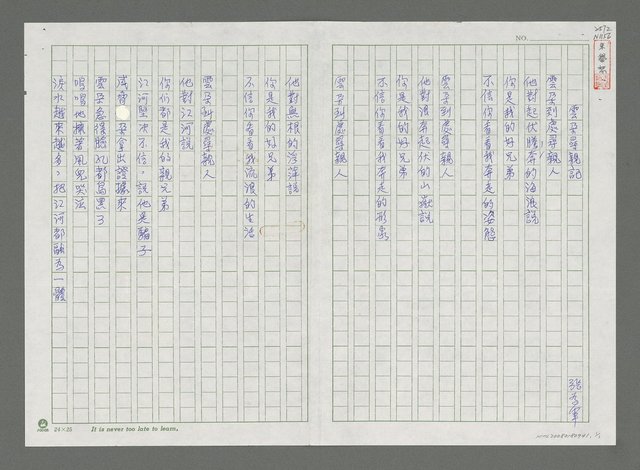 NO.
雲朵尋親記
張秀軍
雲朵到處尋親人
他對起伏騰奔的海浪說
你是我的好兄弟
不信你看看我奔走的姿態
雲朵到處尋親人
他對浪奔起伏的山嶽說
你是我的好兄弟
不信你看看我奔走的形象
雲朵到處尋親人
他對無根的浮萍說
你是我的好兄弟
不信你看看我流浪的生活
雲朵到處尋親人
他對江河說
你們都是我的親兄弟
江河堅決不信,說他是騙子
朵拿出證據來
雲朵急得臉孔都烏黑了
嗚嗚地摟著風兒哭泣
淚水越來越多,把江河都融為一體
24×25
It is never too late to learn.